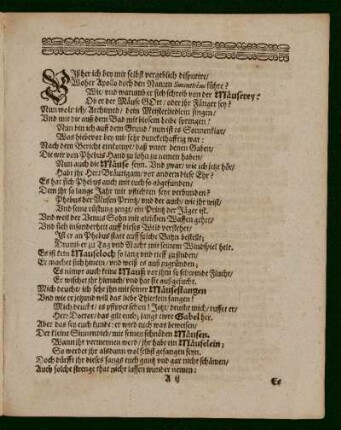 BIßher ich bey mir selbst vergeblich disputire/
Woher Apollo doch den Namen Sminthéus führe?
Wie/ und warumb er sich schreib von der Mäuserey:
Ob er der Mäuse GOtt/ oder ihr Fänger sey?
Nun wolt ich/ Archimed/ dem Meisterliedlein singen/
Und mit die auß dem Bad mit blosem leibe springen!
Nun bin ich auff dem Grund/ nun ist es Sonnenklar/
Was hiebevor bey mir sehr dunckelhafftig war:
Nach dem Bericht einkompt/ daß unter denen Gaben/
Die wir von Phebus Hand zu lohn zu nemen haben/
Nun auch die Mäuse seyn. Und zwar/ wie ich jetzt hör/
Habt ihr Herr Bräutigam/ vor andern diese Ehr?
Es hat sich Phebus auch mit euch so abgefunden/
Dem ihr so lange Jahr mit pflichten sehr verbunden?
Phebus der Musen Printz/ und der auch/ wie ihr wist/
Und seine rüstung zeigt/ ein Printz der Jäger ist.
Und weil der Venus Sohn mit gleichen Waffen gehet/
Und sich insonderheit auff dieses Wild verstehet/
Ist er an Phebus statt auff solche Bahn bestellt;
Drumb er zu Tag und Nacht mit seinem Windspiel helt.
Es ist kein Mauseloch so lang und tieff zufinden/
Er machet sich hinein/ und weiß es außzugründen;
Es nimpt auch keine Mauß vor ihm so schwinde Flucht/
Er wischet ihr hienach/ und hat sie außgesucht.
Mich deucht/ ich sehe ihn mit seiner Mäusestangen
Und wie er jetzund will das liebe Thierlein fangen!
Mich deucht/ es pfipvet schon! Jetzt/ deucht mich/ rufft er/
Herr Doctor/ das gilt euch/ langt ewre Gabel her.
Aber das sey euch kunde: er wird auch was beweisen/
Der kleine Simmenist/ mit seinen schnöden Mäusen.
Wann ihr vermeynen werd/ ihr habt ein Mäuselein;
So werdet ihr alsdann wol selbst gefangen seyn.
Doch dürfft ihr dieses fangs euch gantz und gar nicht schämen/
Auch solche strenge that nicht lassen wunder nemen:
A ij
Es